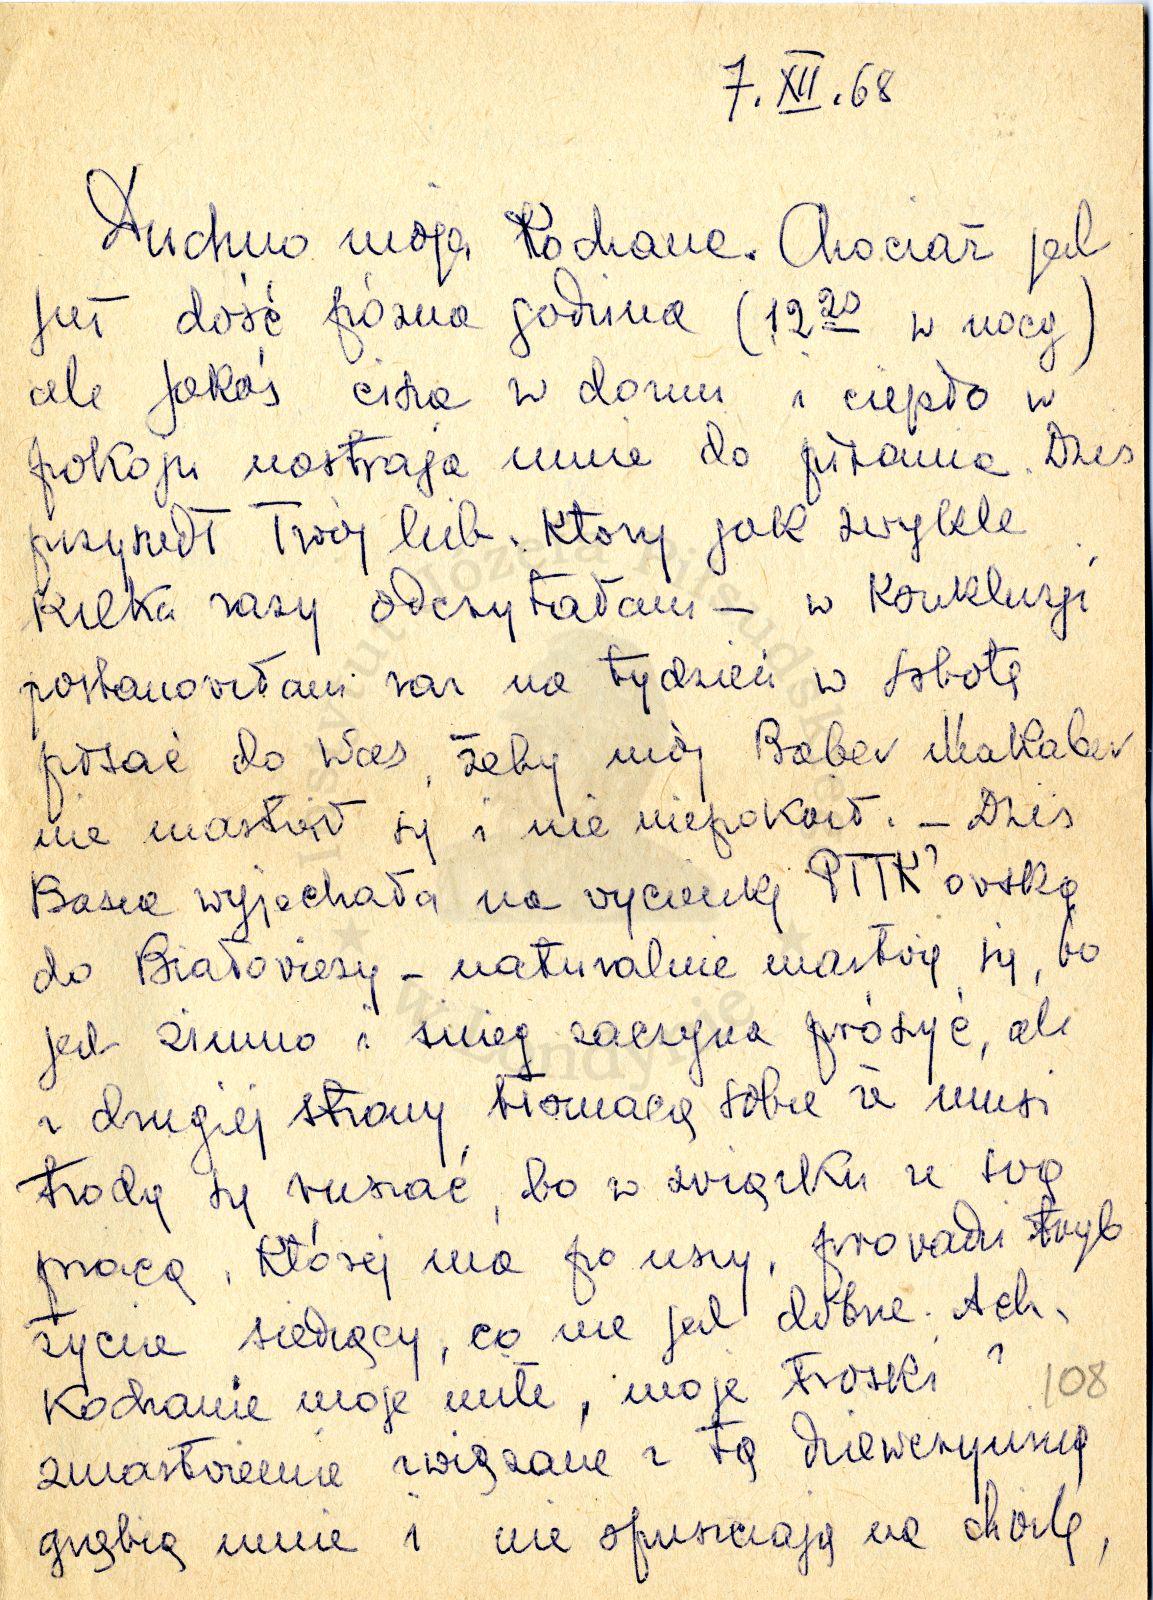 7.XII.68
Duchno moja Kochana. Chociaż jest
już dość późna godzina (12 20 w nocy)
ale jakaś cisza w domu i ciepło w
pokoju nastraja mnie do pisania. Dziś
przyszedł Twój list, który jak zwykle
kilka razy odczytałam – w konkluzji
postanowiłam raz na tydzień w sobotę
pisać do Was, żeby mój Baber Makaber
nie martwił się i nie niepokoił. – Dziś
Basia wyjechała na wycieczkę PTTK'owską
do Białowieży – naturalnie martwię się, bo
jest zimno i śnieg zaczyna prószyć, ale
z drugiej strony tłomaczę sobie że musi
trochę się ruszać, bo w związku ze swą
pracą, której ma po uszy, prowadzi tryb
życia siedzący, co nie jest dobrze. Ach,
Kochanie moje miłe, moje troski i
zmartwienia związane z tą dziewczyniną
gnębią mnie i nie opuszczają na chwilę,
108
Instytut Józefa Piłsudskiego
w Londynie